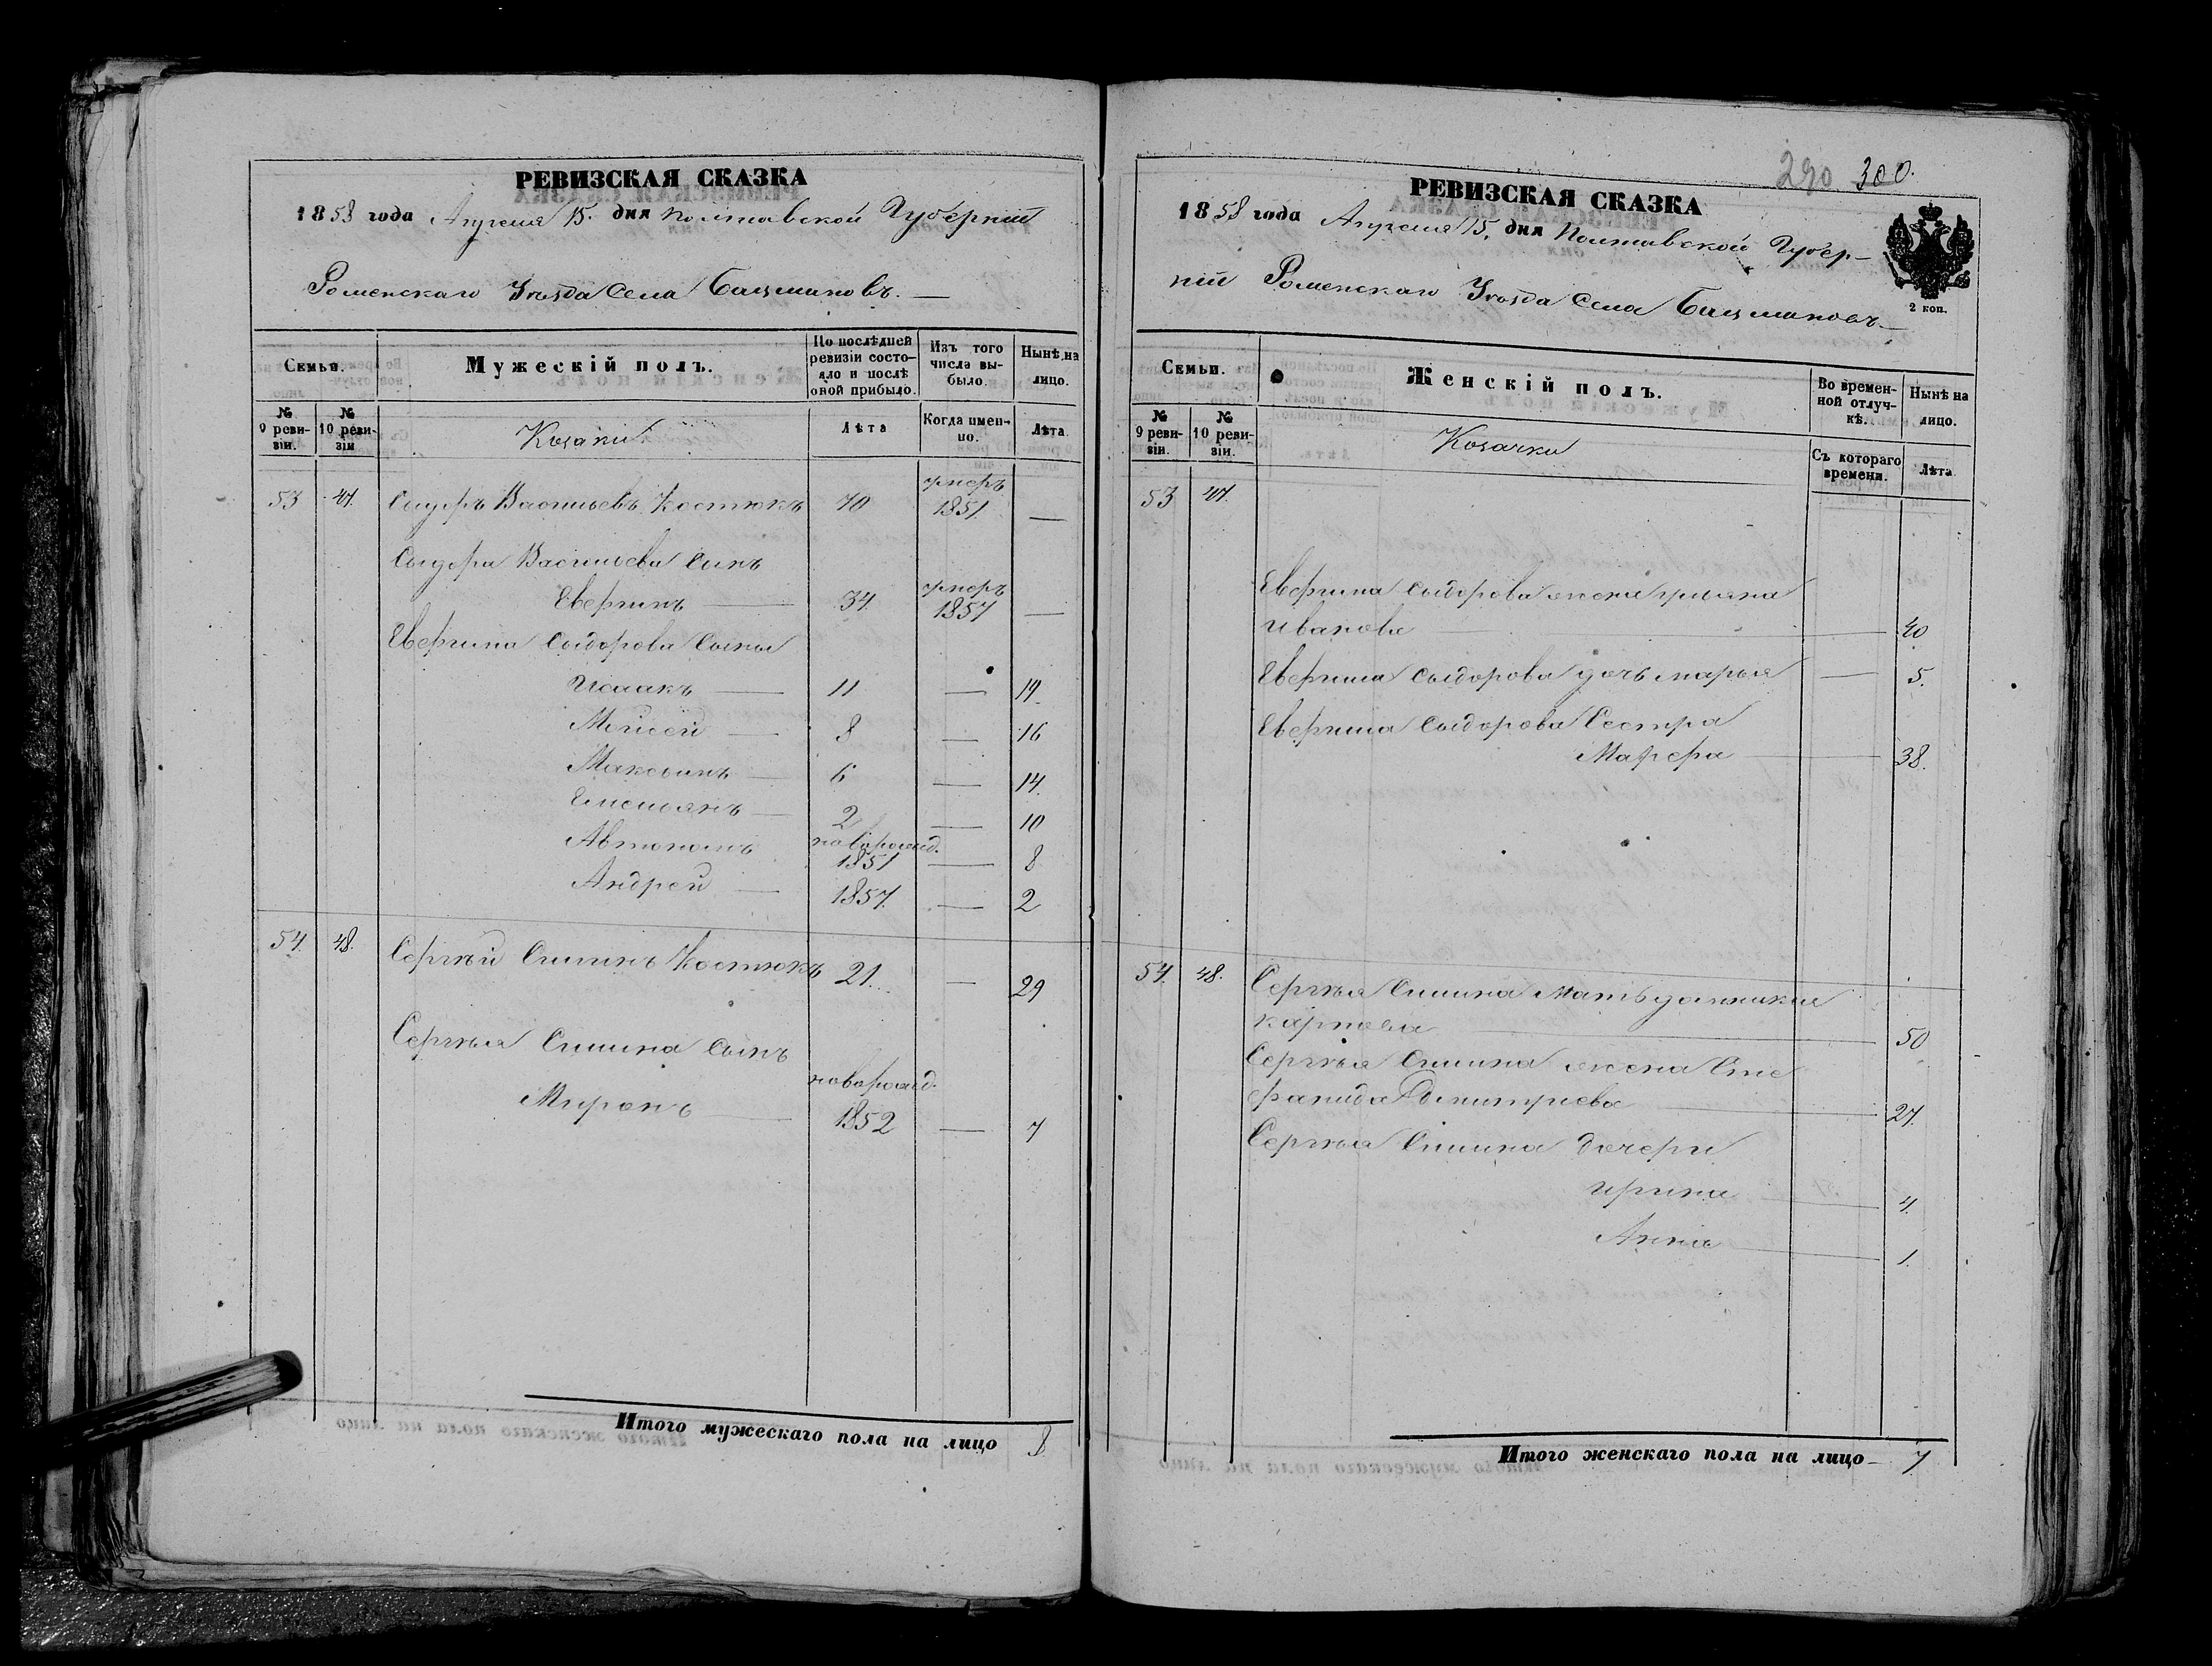 РЕВИЗСКАЯ СКАЗКА
1858 года Апреля 15. дня Полтавской Губерніи
Роменскаго Уѣзда Села Бацмановъ.
Семьи.
Мужескій полъ.
По послѣдней ревизіи состояло и послѣ оной прибыло.
Изъ того числа выбыло.
Нынѣ на лицо.
№ 9 ревизіи.
№ 10 ревизіи
Козаки
Лѣта
Когда именно.
Лѣта.
53 47. Сыдоръ Васильевъ Костюкъ 70 умеръ 1851 —
Сыдора Васильева Сынъ
Евфимъ — 34. умеръ 1857 —
Евфима Сыдорова Сыны
Исаакъ — 11 — 19.
Моисей — 8 — 16
Максимъ — 6 — 14.
Емельянъ — 2 — 10
Автономъ новорожд. 1851 — 8
Андрей — 1857. — 2
54. 48. Сергѣй Симинъ Костюкъ 21. — 29
Сергѣя Симина Сынъ
Миронъ новорожд. 1852 — 7
Итого мужескаго пола на лицо 8
290 300.
РЕВИЗСКАЯ СКАЗКА
1858 года Апреля 15. дня Полтавской Губер-
ніи Роменскаго Уѣзда Села Бацмановъ.
2 коп.
Семьи.
Женскій полъ.
Во временной отлучкѣ.
Нынѣ на лицо.
№ 9 ревизіи.
№ 10 ревизіи.
Козачки
Съ котораго времени.
Лѣта.
53 47.
Евфима Сыдорова жена Ульяна
Иванова — 40
Евфима Сыдорова дочь Марья — 5.
Евфима Сыдорова Сестра
Марфа — 38.
54. 48. Сергѣя Симина Мать Домникия
Карпова — 50
Сергѣя Симина жена Сте
фанида Димитриева — 27.
Сергѣя Симина дочери
Ирина — 4.
Анна — 1.
Итого женскаго пола на лицо — 7